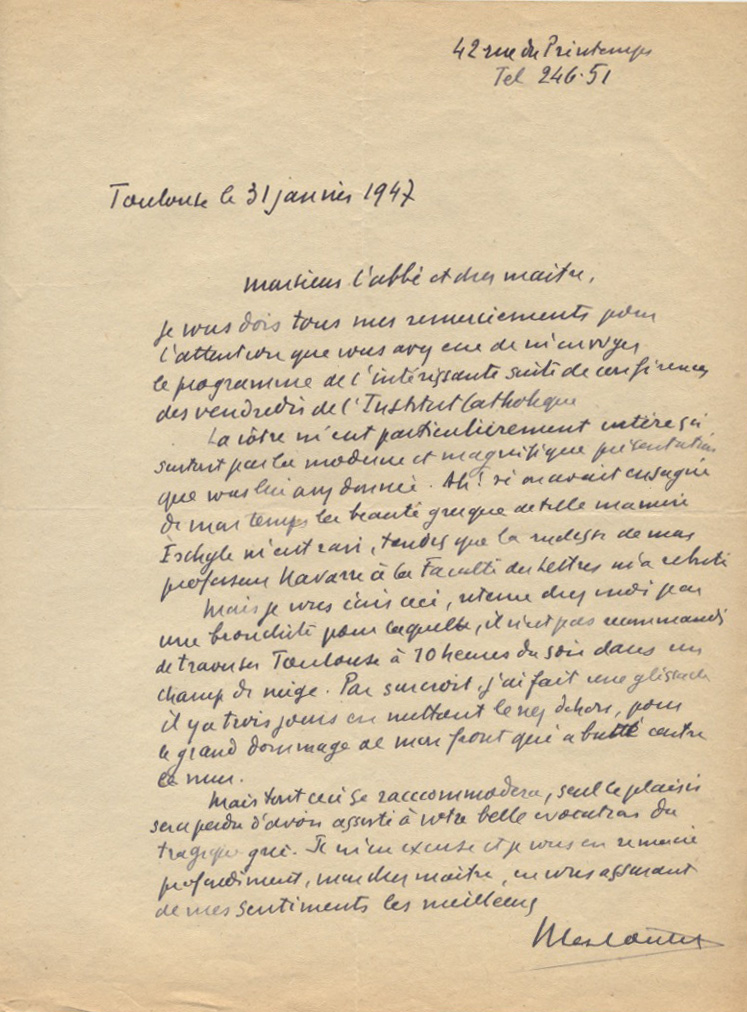 42 rue du Printemps
Tel 246.51
Toulouse le 31 janvier 1947
Monsieur l'abbé et cher maître,
Je vous dois tous mes remerciements pour
l'attention que vous avez eue de m'envoyer
le programme de l'intéressante suite de conférences
des vendredis de l'Institut Catholique
La vôtre m'eut particulièrement intéressé
surtout par la moderne et magnifique présentation
que vous lui avez donnée. Ah! si on avait enseigné
de mon temps la beauté grecque de telle manière
Eschyle m'eut ravi, tandis que la rudesse de mon
professeur Navarre à la Faculté des Lettres m'a rebuté
Mais je vous écris ceci, retenu chez moi par
une bronchite pour laquelle, il n'est pas recommandé
de traverser Toulouse à 10 heures du soir dans un
champ de neige. Par surcroit, j'ai fait une glissade
il y a trois jours en mettant le nez dehors, pour
le grand dommage de mon front qui a butté contre
le mur.
Mais tout ceci se raccommodera, seul le plaisir
sera perdu d'avoir assisté à votre belle évocation du
tragique grec. Je m'en excuse et je vous en remercie
profondément, mon cher maître, en vous assurant
de mes sentiments les meilleurs